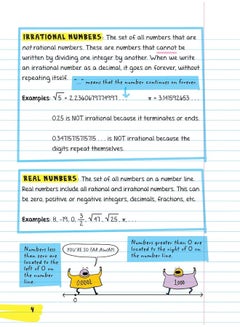 IRRATIONAL NUMBERS: The set of all numbers that are
not rational numbers. These are numbers that cannot be
written by dividing one integer by another. When we write
an irrational number as a decimal, it goes on forever, without
repeating itself.
"..." means that the number continues on forever.
Examples: √5 = 2.2360679774997... π = 3.14159265...
0.25 is NOT irrational because it terminates or ends.
0.3471571571571S... is NOT irrational because the
digits repeat themselves.
REAL NUMBERS: The set of all numbers on a number line.
Real numbers include all rational and irrational numbers. This can
be zero, positive or negative integers, decimals, fractions, etc.
Examples: 8, -19, 0, 3/2, √47, √25, π...
Numbers less
than zero are
located to the
left of 0 on
the number
line.
YOU'RE SO FAR AWAY!
Numbers greater than 0 are
located to the right of 0 on
the number line.
1,000
0
4